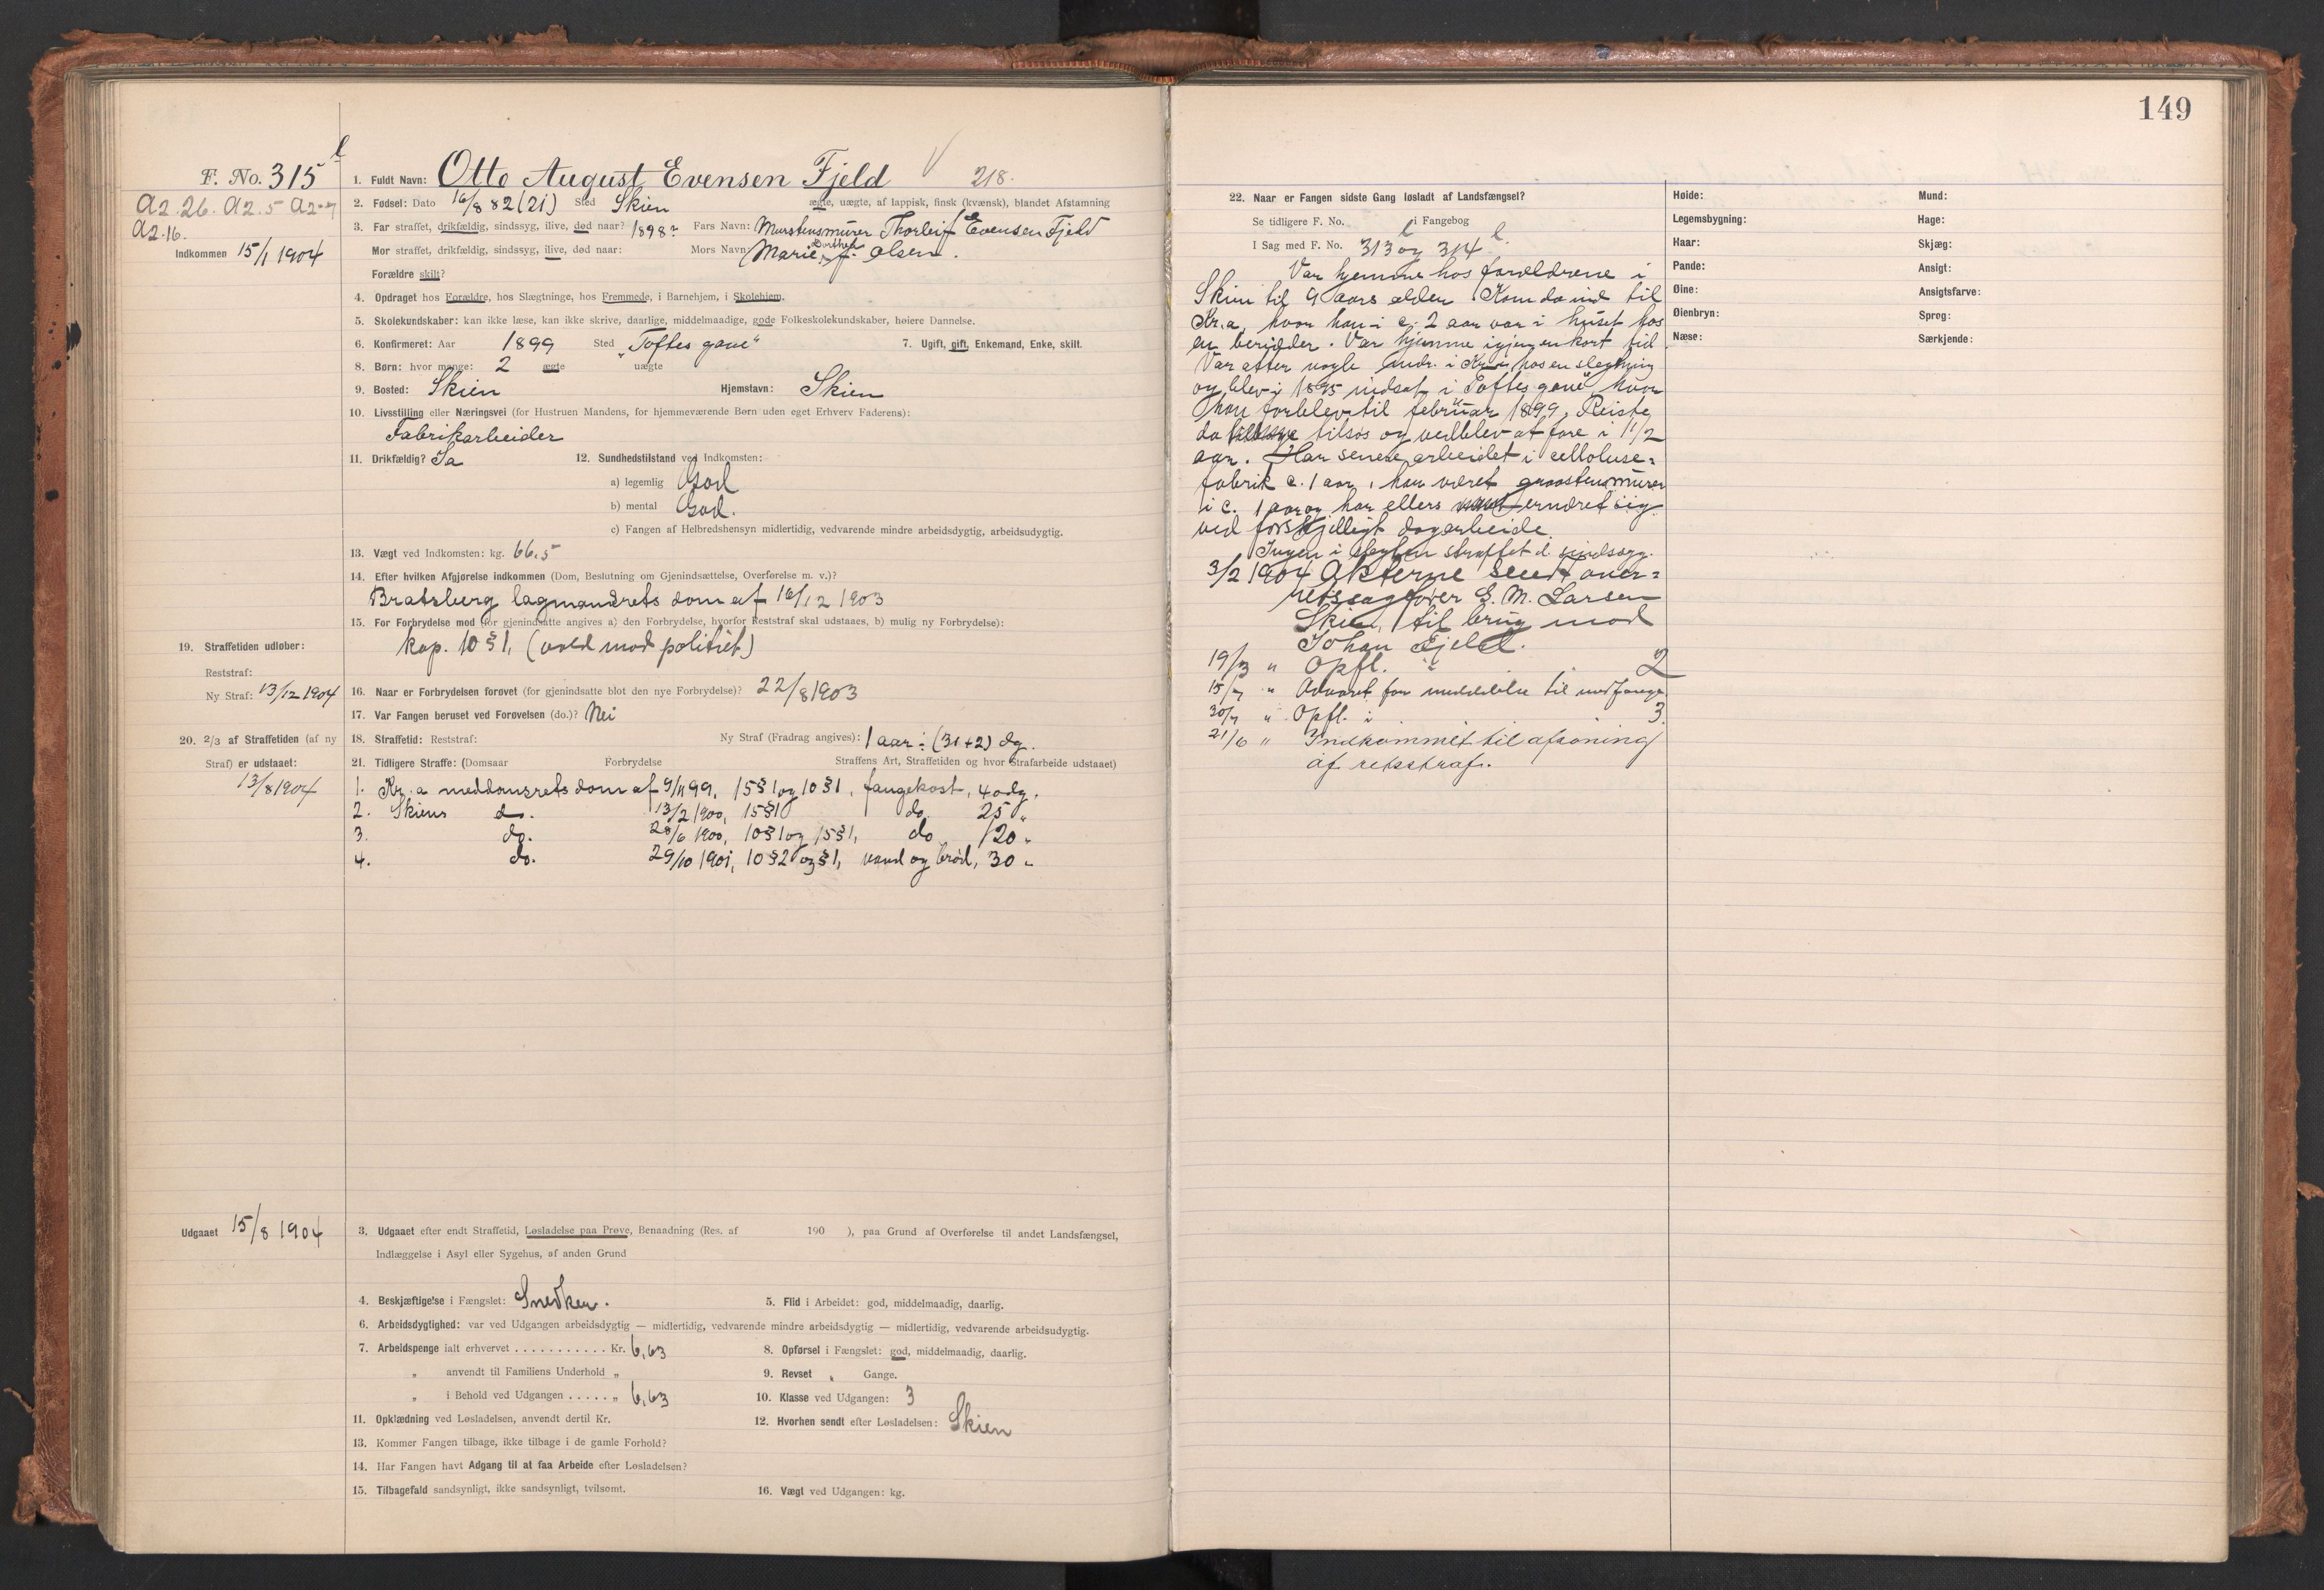 149
l
F. No. 315
1. Fuldt Navn: Otto August Evensen Fjeld 218.
A2.26. A2.5 A2.
A2.16.
Indkommen 15/1 1904
2. Fødsel: Dato 16/8 82 (21) Sted Skien ægte, uægte, af lappisk, finsk (kvænsk), blandet Afstamning
3. Far straffet, drikfældig, sindssyg, ilive, død naar? 1898? Fars Navn: Murstensmurer Thorleif Evensen Fjeld
Mor straffet, drikfældig, sindssyg, ilive, død naar: Mors Navn Marie Dorthea f. Olsen.
Forældre skilt?
4. Opdraget hos Forældre, hos Slægtninge, hos Fremmede, i Barnehjem, i Skolehjem.
5. Skolekundskaber: kan ikke læse, kan ikke skrive, daarlige, middelmaadige, gode Folkeskolekundskaber, høiere Dannelse.
6. Konfirmeret: Aar 1899 Sted „Toftes gave" 7. Ugift, gift, Enkemand, Enke, skilt.
8. Børn: hvor mange: 2 ægte uægte
9. Bosted: Skien Hjemstavn: Skien
10. Livsstilling eller Næringsvei (for Hustruen Mandens, for hjemmeværende Børn uden eget Erhverv Faderens):
Fabrikarbeider
11. Drikfældig? Ja 12. Sundhedstilstand ved Indkomsten:
a) legemlig God
b) mental God.
c) Fangen af Helbredshensyn midlertidig, vedvarende mindre arbeidsdygtig, arbeidsudygtig.
13. Vægt ved Indkomsten: kg. 66.5
14. Efter hvilken Afgjørelse indkommen (Dom, Beslutning om Gjenindsættelse, Overførelse m. v.)?
Bratsberg lagmandsrets dom af 16/12 1903
15. For Forbrydelse mod (for gjenindsatte angives a) den Forbrydelse, hvorfor Reststraf skal udstaaes, b) mulig ny Forbrydelse):
kap. 10 § 1, (vold mod politiet)
19. Straffetiden udløber:
Reststraf:
Ny Straf: 13/12 1904
16. Naar er Forbrydelsen forøvet (for gjenindsatte blot den nye Forbrydelse)? 22/8 1903
17. Var Fangen beruset ved Forøvelsen (do.)? Nei
20. 2/3 af Straffetiden (af ny
Straf) er udstaaet:
13/8 1904
18. Straffetid: Reststraf: Ny Straf (Fradrag angives): 1 aar ÷ (31+2) dg.
21. Tidligere Straffe: (Domsaar Forbrydelse Straffens Art, Straffetiden og hvor Strafarbeide udstaaet)
1. Kr.a meddomsrets dom af 9/11 99, 15 § 1 og 10 § 1, fangekost, 40 dg.
2. Skiens do. 13/2 1900, 15 § 1 do. 25 „
3. do. 28/6 1900, 10 § 1 og 15 § 1, do 120 „
4. do. 29/10 1901, 10 § 2 og § 1, vand og brød, 30 „
Udgaaet 15/8 1904
3. Udgaaet efter endt Straffetid, Løsladelse paa Prøve, Benaadning (Res. af 190 ), paa Grund af Overførelse til andet Landsfængsel,
Indlæggelse i Asyl eller Sygehus, af anden Grund
4. Beskjæftigelse i Fængslet: Snedker.
5. Flid i Arbeidet: god, middelmaadig, daarlig.
6. Arbeidsdygtighed: var ved Udgangen arbeidsdygtig — midlertidig, vedvarende mindre arbeidsdygtig — midlertidig, vedvarende arbeidsudygtig.
7. Arbeidspenge ialt erhvervet . . . . . . . . . . . Kr. 6,63
8. Opførsel i Fængslet: god, middelmaadig, daarlig.
„ anvendt til Familiens Underhold „
9. Revset „ Gange.
„ i Behold ved Udgangen . . . . . „ 6,63
10. Klasse ved Udgangen: 3
11. Opklædning ved Løsladelsen, anvendt dertil Kr.
12. Hvorhen sendt efter Løsladelsen: Skien
13. Kommer Fangen tilbage, ikke tilbage i de gamle Forhold?
14. Har Fangen havt Adgang til at faa Arbeide efter Løsladelsen?
15. Tilbagefald sandsynligt, ikke sandsynligt, tvilsomt.
16. Vægt ved Udgangen: kg.
22. Naar er Fangen sidste Gang løsladt af Landsfængsel?
Se tidligere F. No. i Fangebog
I Sag med F. No. 313 l og 314 l.
Var hjemme hos forældrene i
Skien til 9 aars alder. Kom da ind til
Kr.a, hvor han i c. 2 aar var i huset hos
en berider. Var hjemme igjen en kort tid
Var atter nogle mdr. i Kr.a hos en slegtning
og blev i 1895 indsat i „Toftes gave", hvor
han forblev til februar 1899. Reiste
da tilsøs og vedblev at fare i 1 1/2
aar. Har senere arbeidet i celloluse=
fabrik c. 1 aar, har været graastensmurer
i c. 1 aar og har ellers ernæret sig
ved forskjelligt dagarbeide.
Ingen i slegten straffet el. sindssyg.
3/2 1904 Akterne sendt over=
retssagfører G. M. Larsen
Skien, til brug mod
Johan Fjeld.
19/3 „ Opfl. i 2
15/4 „ Advaret for meddelelse til medfange
30/4 „ Opfl. i 3.
21/6 „ Indkommet til afsoning
af retsstraf.
Høide:
Legemsbygning:
Haar:
Pande:
Øine:
Øienbryn:
Næse:
Mund:
Hage:
Skjæg:
Ansigt:
Ansigtsfarve:
Sprog:
Særkjende: